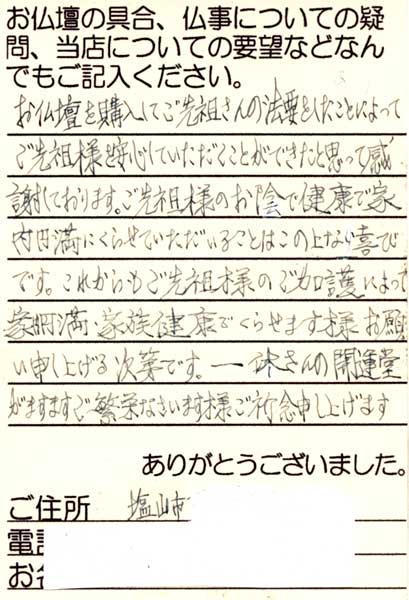 お仏壇の具合、仏事についての疑
問、当店についての要望などなん
でもご記入ください。
お仏壇を購入してご先祖さんの法要をしたことによって
ご先祖様を安心していただくことができたと思って感
謝しております。ご先祖様のお陰で健康で家
内円満にくらせていただいることはこの上ない喜び
です。これからもご先祖様のご加護によって
家内円満・家族健康でくらせます様お願
い申し上げる次第です。一休さんの開運堂
がますますご繁栄なさいます様ご祈念申し上げます
ありがとうございました。
ご住所 塩山市
電話
お名